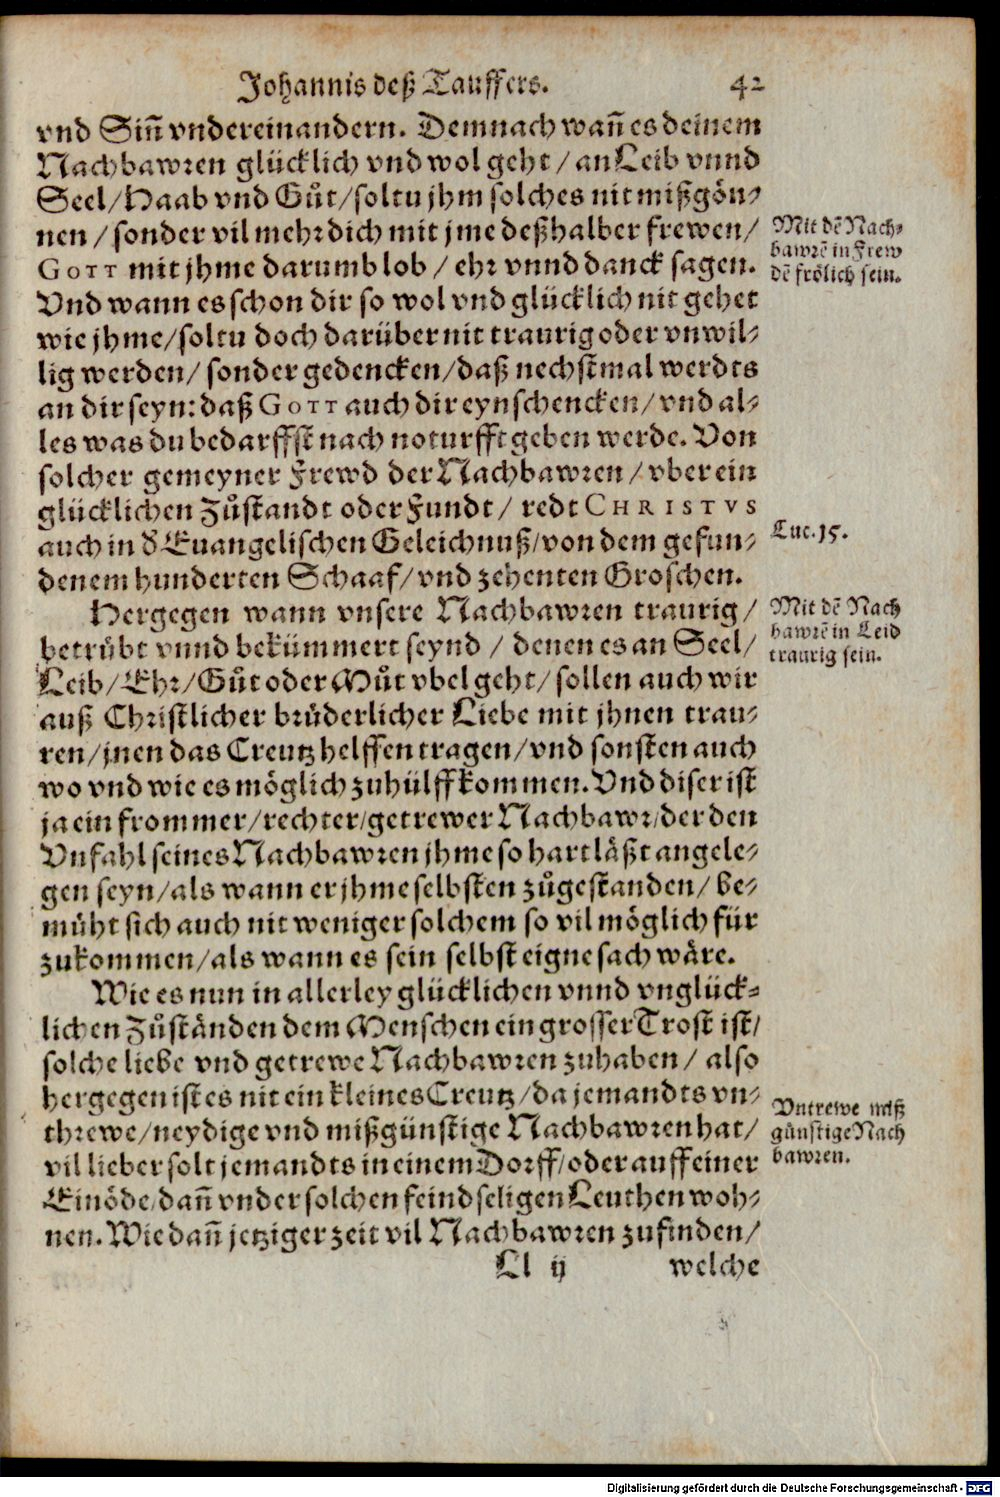 Johannis deß Tauffers. 42
vnd Siñ vndereinandern. Demnach wañ es deinem
Nachbawren glücklich vnd wol geht / an Leib vnnd
Seel / Haab vnd Gůt / soltu jhm solches nit mißgön⸗
nen / sonder vil mehr dich mit jme deßhalber frewen /
GOTT mit jhme darumb lob / ehr vnnd danck sagen.
Vnd wann es schon dir so wol vnd glücklich nit gehet
wie jhme / soltu doch darüber nit traurig oder vnwil⸗
lig werden / sonder gedencken / daß nechstmal werdts
an dir seyn: daß GOTT auch dir eynschencken / vnd al⸗
les was du bedarffst nach noturfft geben werde. Von
solcher gemeyner Frewd der Nachbawren / vber ein
glücklichen Zůstandt oder Fundt / redt CHRISTVS
auch in d̕ Euangelischen Geleichnuß / von dem gefun⸗
denem hunderten Schaaf / vnd zehenten Groschen.
Hergegen wann vnsere Nachbawren traurig /
betrübt vnnd bekümmert seynd / denen es an Seel /
Leib / Ehr / Gůt oder Můt vbel geht / sollen auch wir
auß Christlicher brüderlicher Liebe mit jhnen trau⸗
ren / jnen das Creutz helffen tragen / vnd sonsten auch
wo vnd wie es möglich zuhülff kommen. Vnd diser ist
ja ein frommer / rechter / getrewer Nachbawr / der den
Vnfahl seines Nachbawren jhme so hart läßt angele⸗
gen seyn / als wann er jhme selbsten zůgestanden / be⸗
müht sich auch nit weniger solchem so vil möglich für
zukommen / als wann es sein selbst eigne sach wäre.
Wie es nun in allerley glücklichen vnnd vnglück⸗
lichen Zůständen dem Menschen ein grosser Trost ist /
solche liebe vnd getrewe Nachbawren zuhaben / also
hergegen ist es nit ein kleines Creutz / da jemandts vn⸗
threwe / neydige vnd mißgünstige Nachbawren hat /
vil lieber solt jemandts in einem Dorff / oder auff einer
Einöde / dañ vnder solchen feindseligen Leuthen woh⸗
nen. Wie dañ jetziger zeit vil Nachbawren zufinden /
Ll ij welche
Mit dẽ Nach⸗
bawrẽ in Frew
dẽ frölich sein.
Luc. 15.
Mit dẽ Nach
bawrẽ in Leid
traurig sein.
Vntrewe miß
günstige Nach
bawren.
Digitalisierung gefördert durch die Deutsche Forschungsgemeinschaft - DFG